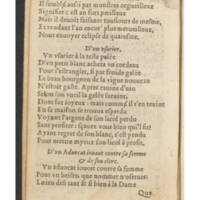 Il sembloit aussi par monstres orgueilleux
Signifier
Mais il deuoit faisant tousiours de mesme,
Et rendant l'an encor' plus merueilleux,
Nous enuoyer eclipse de quaresme.
D'vn vsurier.
Vn vsurier à la teste
D'vn petit blanc acheta vn cordeau
Pour s'estrangler, si par froide gelée
Le beau bourgeon de la vigne nouueau
N'estoit gasté. Apres rauine d'eau
Selon son vueil la gelée
Dont fut ioyeux: mais comme il s'en
En sa maison se trouua
Voyant l'argent de son licol perdu
Sans profiter: sçauez vous bien qu'il fit?
Ayant regret de son blanc, s'est pendu
Pour mettre mieux son licol à profit.
D'vn Aduocat iouant contre sa femme
& de son clerc.
Vn aduocat iouoit contre sa femme
Pour vn baiser, que nommer n'oseroie:
Le ieu dist tant & si bien à la Dame
Que